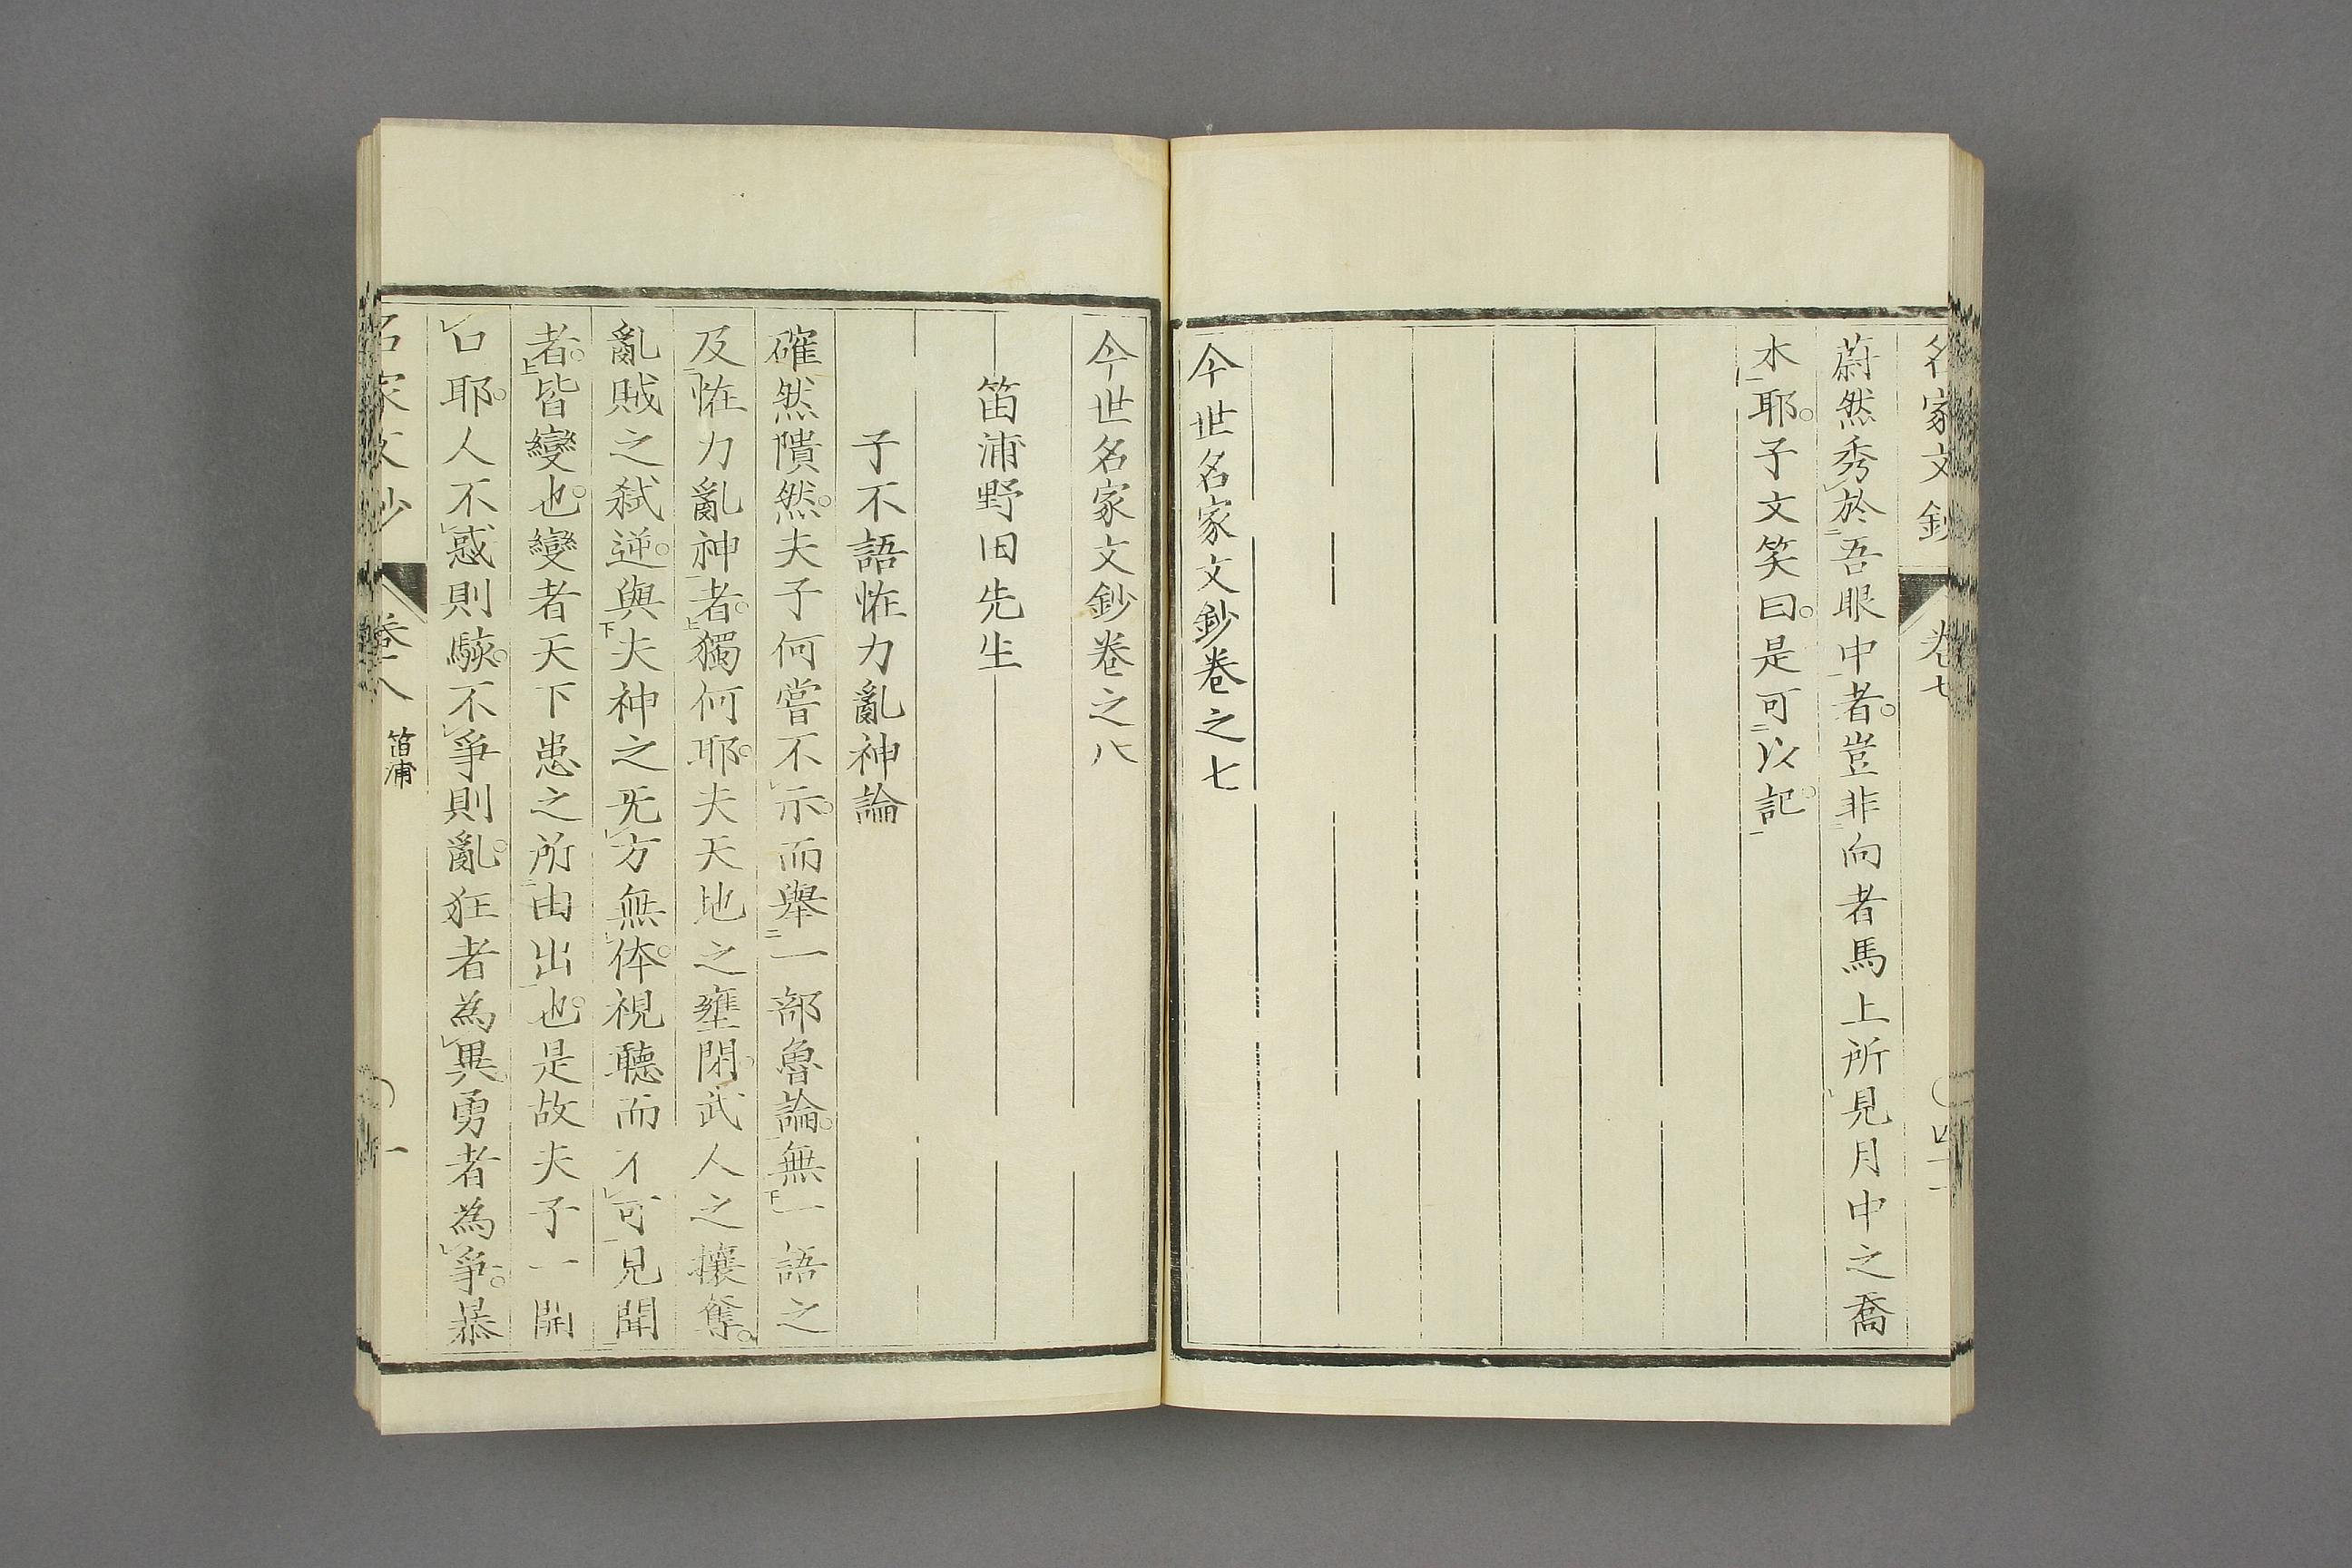 名家文鈔 卷七 四十一
蔚然秀於吾眼中者。豈非向者馬上所見月中之喬
木耶。子文笑曰。是可以記。
今世名家文鈔卷之七
今世名家文鈔卷之八
笛浦野田先生
子不語恠力亂神論
確然隤然。夫子何嘗不示。而舉一部魯論。無一語之
及恠力亂神者。獨何耶。夫天地之壅閉。武人之攘奪。
亂賊之弑逆。與夫神之旡方無体。視聽而不可見聞
者。皆變也。變者天下患之所由出也。是故夫子一開
口耶。人不惑則駭。不爭則亂。狂者為異。勇者為爭。暴
名家文鈔 卷八 笛浦 一